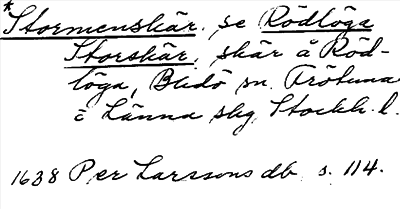 *Stormenskär. se Rödlöga
Storskär, skär å Röd-
löga, Blidö sn. Frötuna
o Länna skg Stockh. l.
1638 Per Larssons db s. 114.